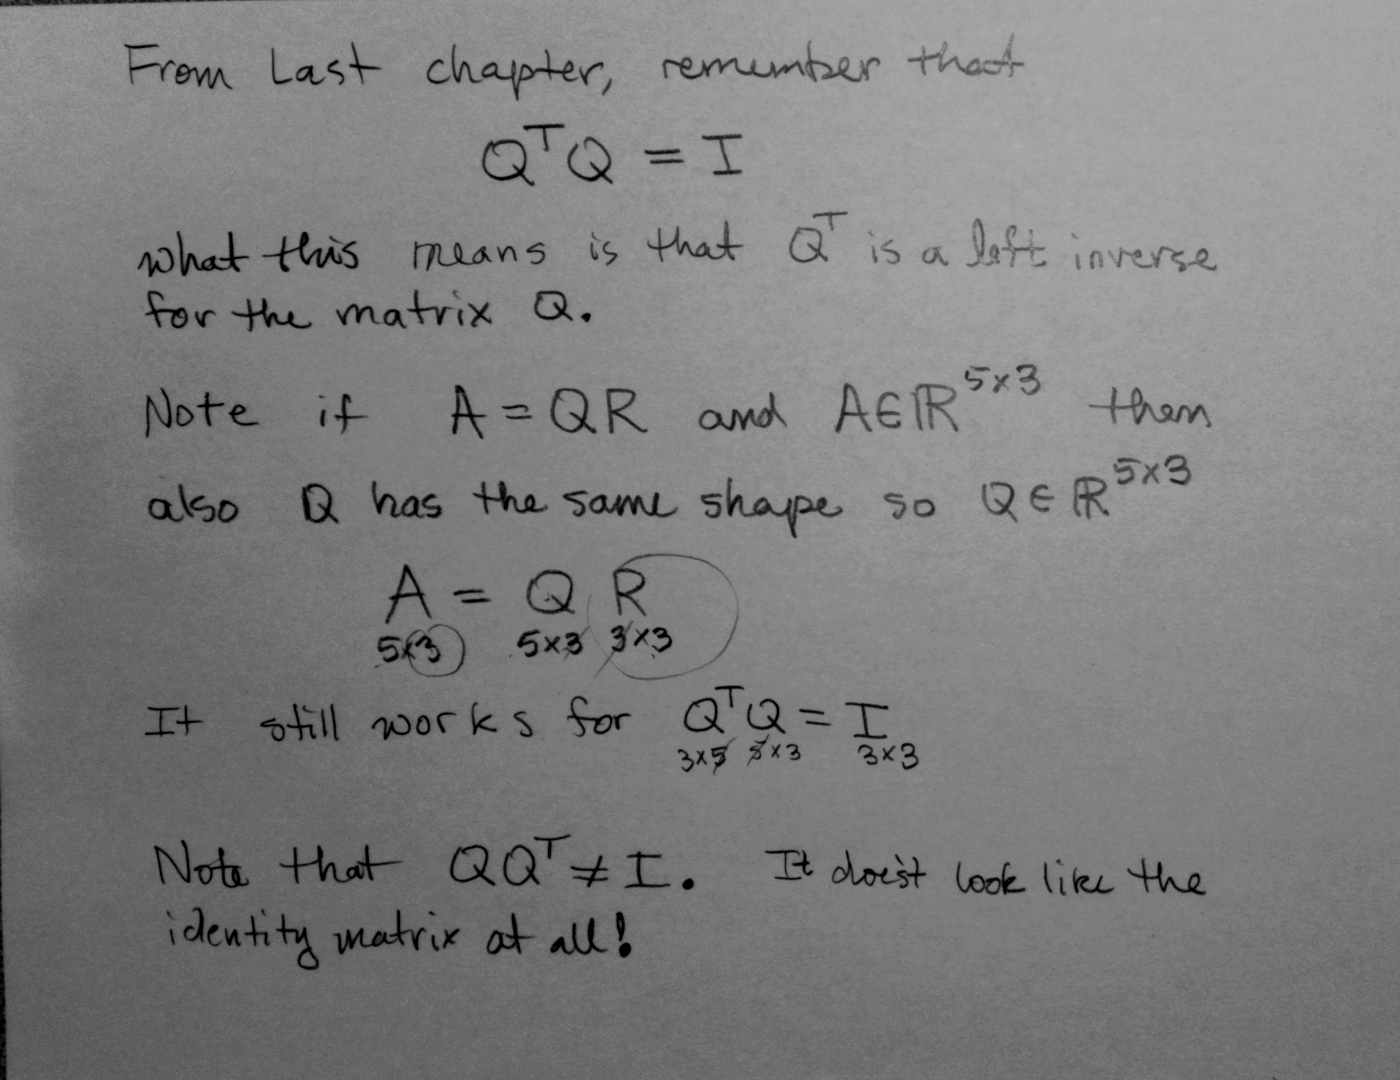 From Last chapter, remember that
QᵀQ = I
what this means is that Qᵀ is a left inverse
for the matrix Q.
Note if A = QR and A∈ℝ⁵ˣ³ then
also Q has the same shape so Q∈ℝ⁵ˣ³
A = Q R
5×3 5×3 3×3
It still works for QᵀQ = I
3×5 5×3 3×3
Note that QQᵀ ≠ I. It does't look like the
identity matrix at all!